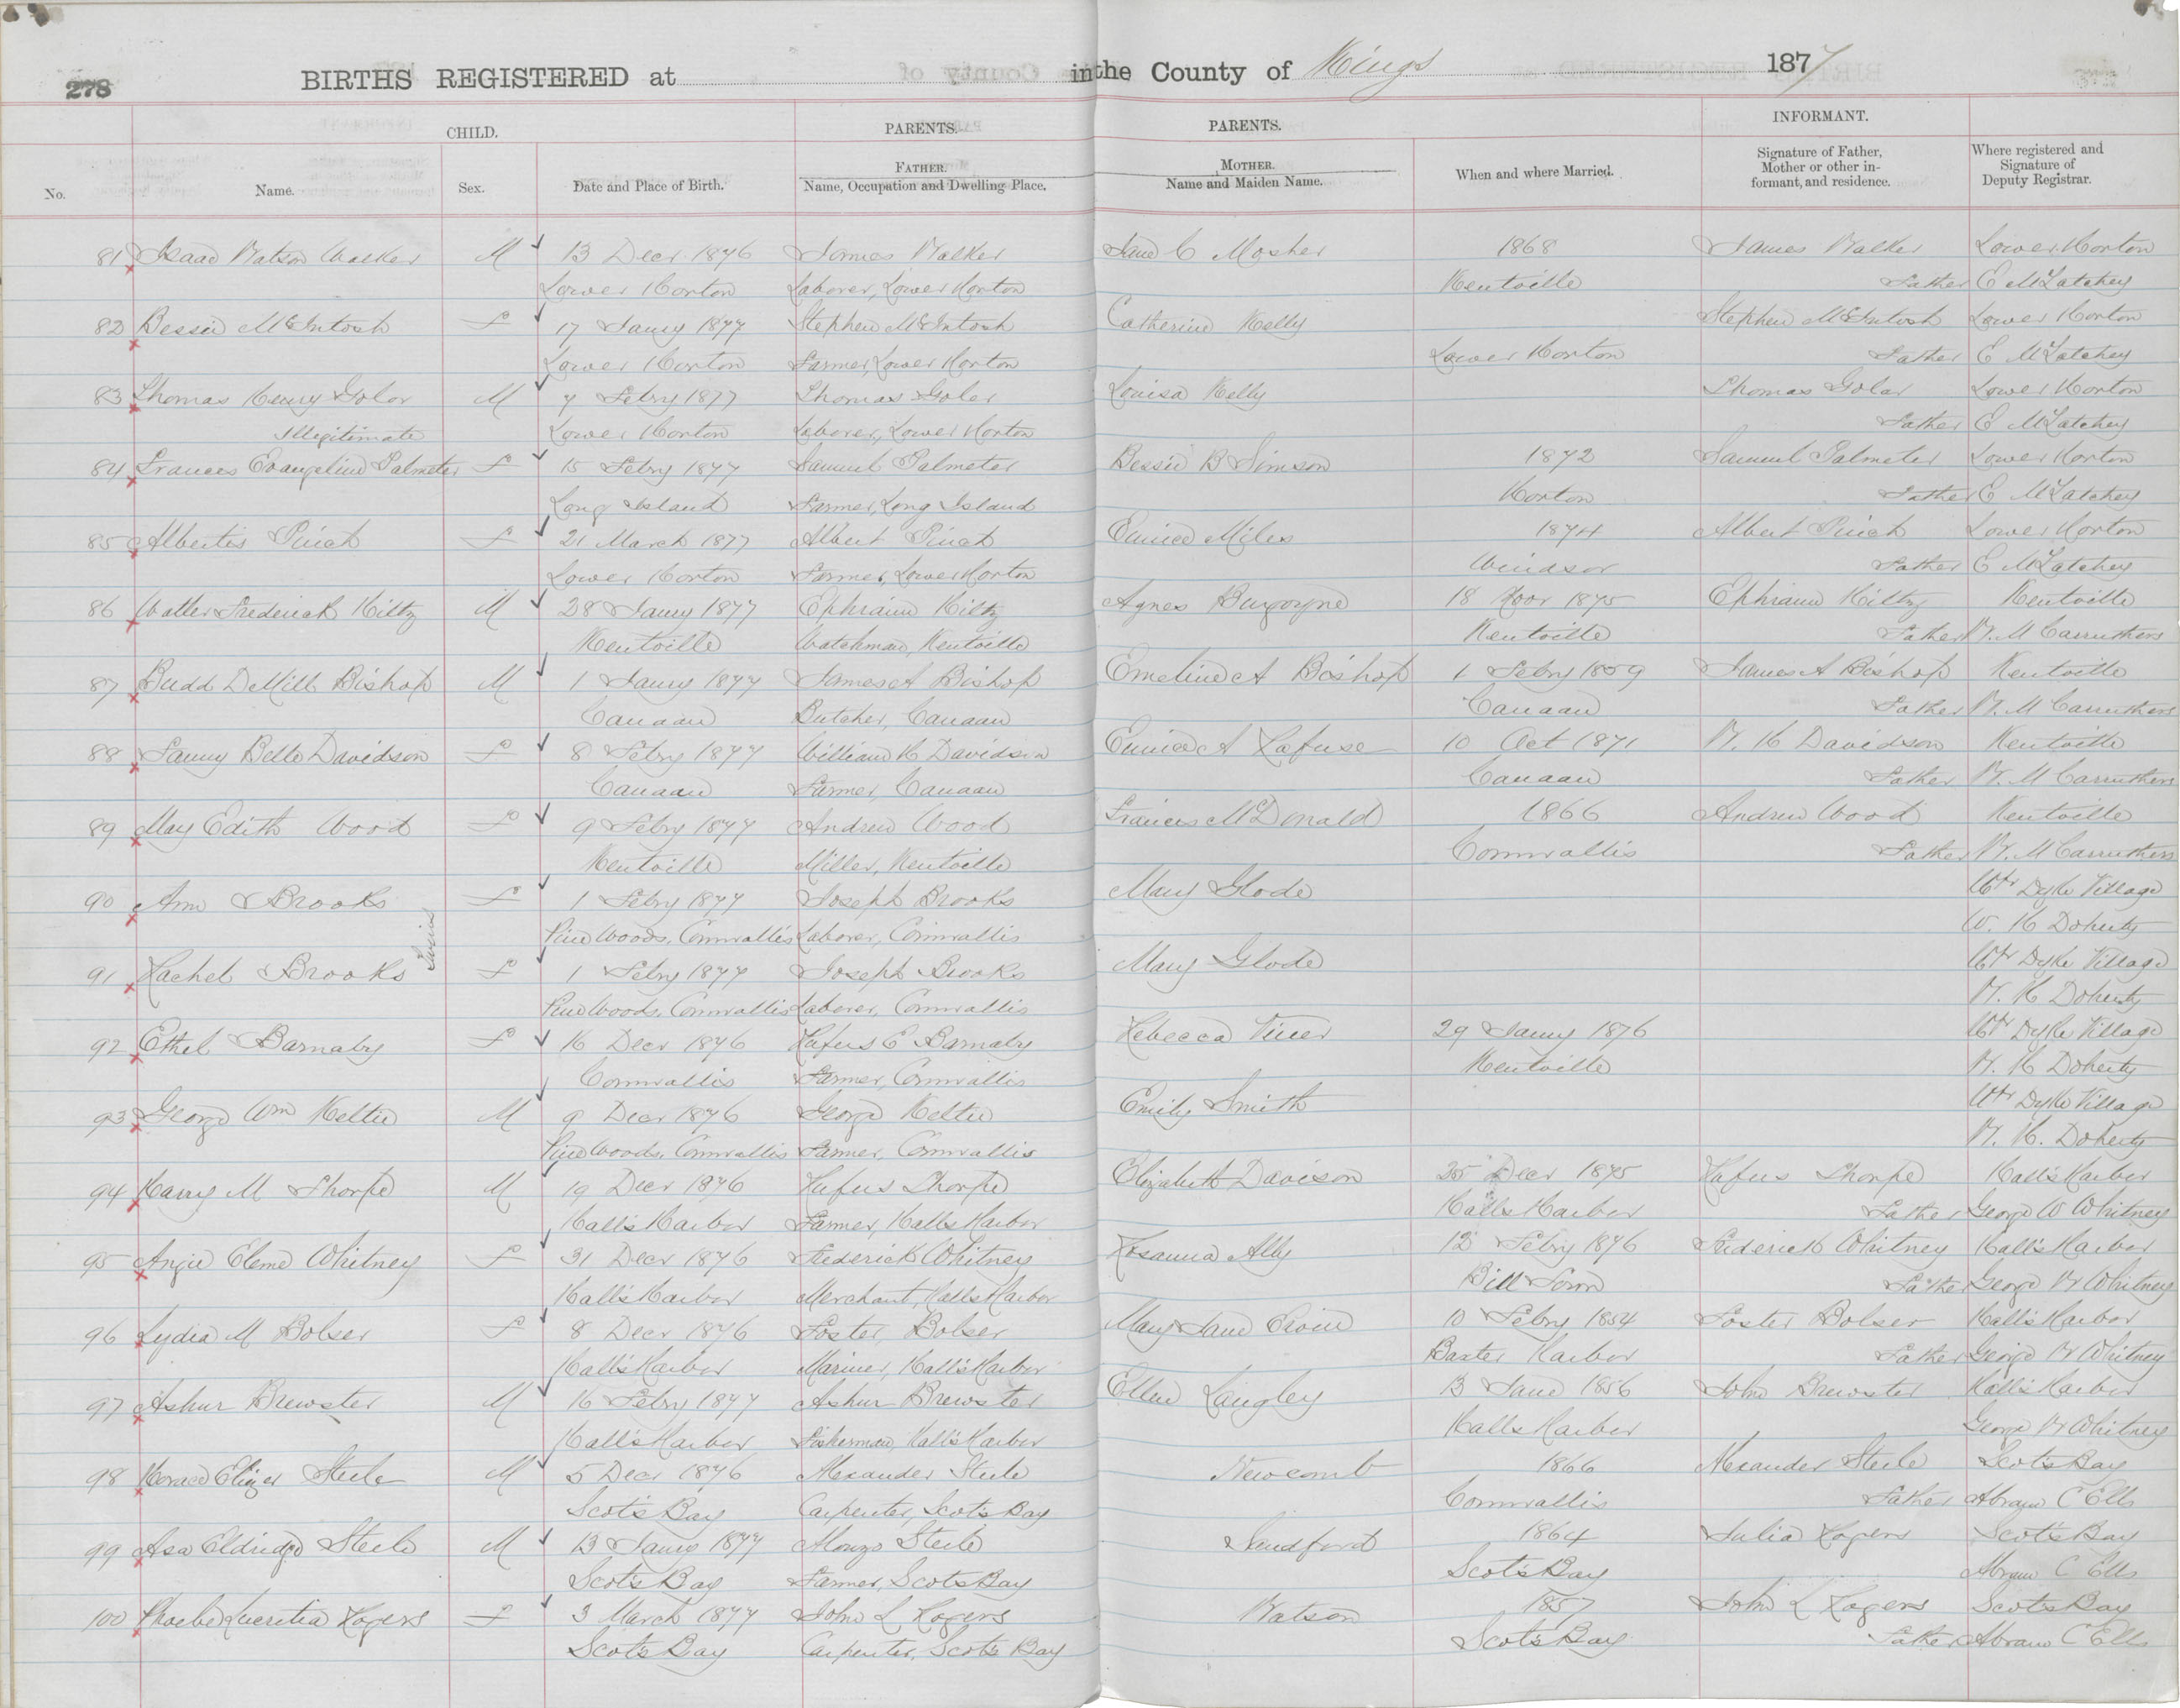 278 BIRTHS REGISTERED at in the County of Kings 1877
CHILD. PARENTS. PARENTS. INFORMANT.
No. Name. Sex. Date and Place of Birth. FATHER. Name, Occupation and Dwelling Place. MOTHER. Name and Maiden Name. When and where Married. Signature of Father, Mother or other informant, and residence. Where registered and Signature of Deputy Registrar.
81 Isaac Watson Walker M 13 Decr 1876 James Walker Jane C Mosher 1868 James Walker Lower Horton
Lower Horton Laborer, Lower Horton Kentville Father E McLatchey
82 Bessie McIntosh F 17 Jany 1877 Stephen McIntosh Catherine Kelly Stephen McIntosh Lower Horton
Lower Horton Farmer, Lower Horton Lower Horton Father E McLatchey
83 Thomas Henry Golar M 7 Febry 1877 Thomas Goler Louisa Kelly Thomas Golar Lower Horton
Illegitimate Lower Horton Laborer, Lower Horton Father E McLatchey
84 Frances Evangeline Palmeter F 15 Febry 1877 Samuel Palmeter Bessie B Simson 1872 Samuel Palmeter Lower Horton
Long Island Farmer, Long Island Horton Father E McLatchey
85 Albertis Pinch F 21 March 1877 Albert Pinch Eunice Miles 1874 Albert Pinch Lower Horton
Lower Horton Farmer, Lower Horton Windsor Father E McLatchey
86 Walter Frederick Hiltz M 28 Jany 1877 Ephraim Hiltz Agnes Burgoyne 18 Novr 1875 Ephraim Hiltz Kentville
Kentville Watchman, Kentville Kentville Father W. M Carruthers
87 Budd DeMill Bishop M 1 Jany 1877 James A Bishop Emeline A Bishop 1 Febry 1859 James A Bishop Kentville
Canaan Butcher, Canaan Canaan Father W. M Carruthers
88 Fanny Belle Davidson F 8 Febry 1877 William H Davidson Eunice A Lafuse 10 Oct 1871 W. H Davidson Kentville
Canaan Farmer, Canaan Canaan Father W. M Carruthers
89 May Edith Wood F 9 Febry 1877 Andrew Wood Frances McDonald 1866 Andrew Wood Kentville
Kentville Miller, Kentville Cornwallis Father W. M Carruthers
90 Ann Brooks F 1 Febry 1877 Joseph Brooks Mary Glode Wtr Dyke Village
Twins Pine Woods, Cornwallis Laborer, Cornwallis W. H Doherty
91 Rachel Brooks F 1 Febry 1877 Joseph Brooks Mary Glode Wtr Dyke Village
Pine Woods, Cornwallis Laborer, Cornwallis W. H Doherty
92 Ethel Barnaby F 16 Decr 1876 Rufus E Barnaby Rebecca 29 Jany 1876 Wtr Dyke Village
Cornwallis Farmer, Cornwallis Kentville W. H Doherty
93 George Wm Keltie M 9 Decr 1876 George Keltie Emily Smith Wtr Dyke Village
Pine Woods, Cornwallis Farmer, Cornwallis W. H. Doherty
94 Harry M Thorpe M 19 Decr 1876 Rufus Thorpe Elizabeth Davison 25 Decr 1875 Rufus Thorpe Hall's Harbor
Hall's Harbor Farmer, Halls Harbor Halls Harbor Father George W Whitney
95 Angie Whitney F 31 Decr 1876 Frederick Whitney Rosanna 12 Febry 1876 Frederick Whitney Hall's Harbor
Hall's Harbor Merchant, Halls Harbor Bill Town Father George W Whitney
96 Lydia M Bolser F 8 Decr 1876 Foster Bolser Mary Jane 10 Febry 1854 Foster Bolser Hall's Harbor
Hall's Harbor Mariner, Hall's Harbor Baxter Harbor Father George W Whitney
97 Ashur Brewster M 16 Febry 1877 Ashur Brewster Ellen Langley 13 June 1856 John Brewster Hall's Harbor
Hall's Harbor Fisherman, Hall's Harbor Halls Harbor George W Whitney
98 Horace Steele M 5 Decr 1876 Alexander Steele Newcomb 1866 Alexander Steele Scots Bay
Scots Bay Carpenter, Scots Bay Cornwallis Father Abram C Ells
99 Asa Eldridge Steele M 13 Jany 1877 Alonzo Steele Sandford 1864 Julia Rogers Scots Bay
Scots Bay Farmer, Scots Bay Scots Bay Abram C Ells
100 Phoebe Lucretia Rogers F 3 March 1877 John L Rogers Watson 1857 John L Rogers Scots Bay
Scots Bay Carpenter, Scots Bay Scots Bay Father Abram C Ells